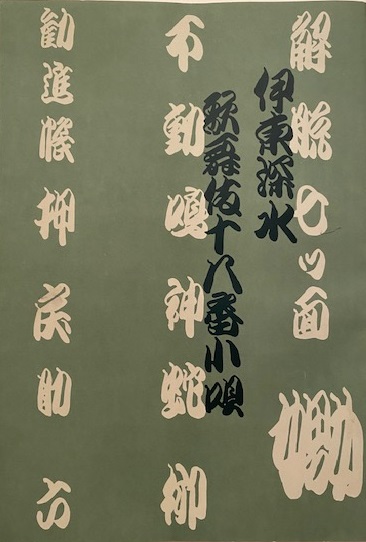 解脱七ツ面 嫐
伊東深水
歌舞伎十八番小唄
不動鳴神蛇柳
勧進帳押戻助六